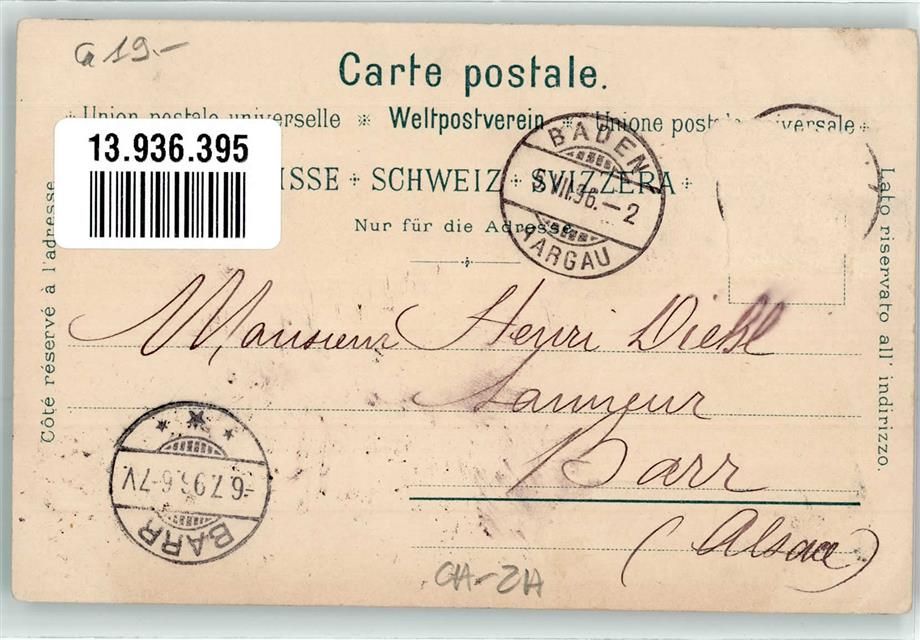 19.-
Carte postale.
Union postale universelle ※ Weltpostverein ※ Unione postale universale
13.936.395
ISSE + SCHWEIZ + SVIZZERA +
Nur für die Adresse
Côté réservé à l'adresse
Lato riservato all' indirizzo.
BADEN
5 VII.96.-2
AARGAU
Monsieur Henri Diehl
Tanneur
Barr
(Alsace)
BARR
-6.7.96.6-7V
CH-ZH